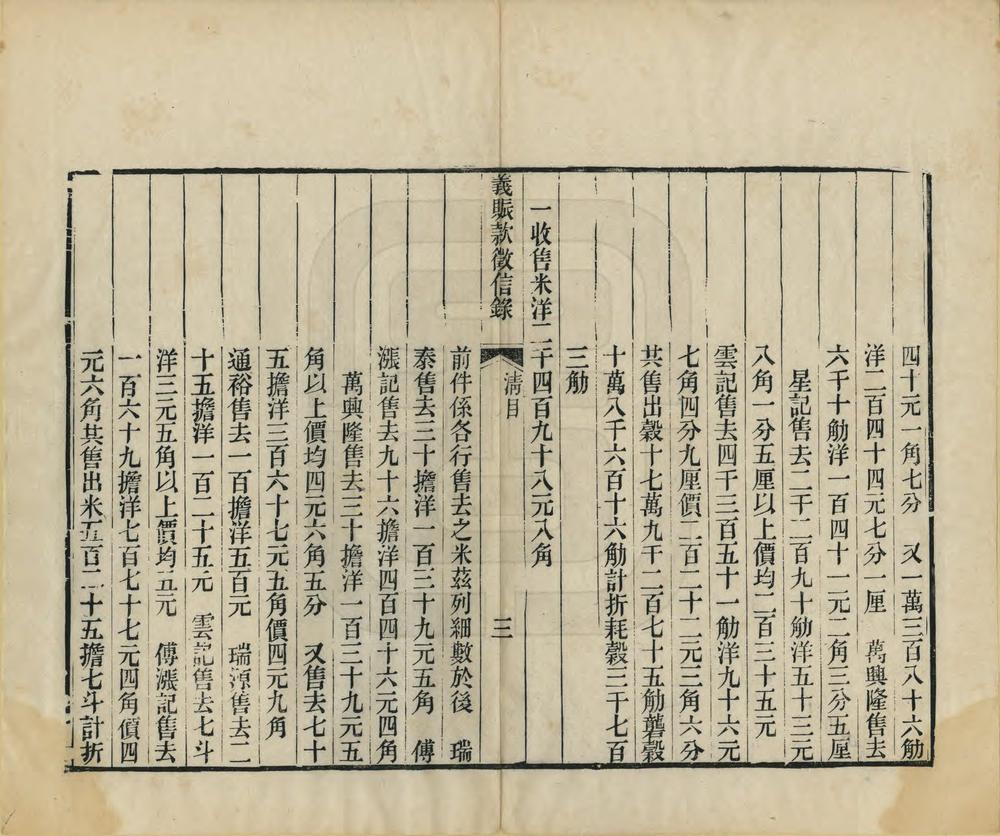 四十元一角七分　又一萬三百八十六觔
洋二百四十四元七分一厘　萬興隆售去
六千十觔洋一百四十一元二角三分五厘
星記售去二千二百九十觔洋五十三元
八角一分五厘以上價均二百三十五元
雲記售去四千三百五十一觔洋九十六元
七角四分九厘價二百二十二元三角六分
共售出穀十七萬九千二百七十五觔礱穀
十萬八千六百十六觔計折耗穀三千七百
三觔
一收售米洋二千四百九十八元八角
義賑款徵信錄　清目　三
前件係各行售去之米茲列細數於後　瑞
泰售去三十擔洋一百三十九元五角　傅
漲記售去九十六擔洋四百四十六元四角
萬興隆售去三十擔洋一百三十九元五
角以上價均四元六角五分　又售去七十
五擔洋三百六十七元五角價四元九角
通裕售去一百擔洋五百元　瑞源售去二
十五擔洋一百二十五元　雲記售去七斗
洋三元五角以上價均五元　傅漲記售去
一百六十九擔洋七百七十七元四角價四
元六角共售出米五百二十五擔七斗計折